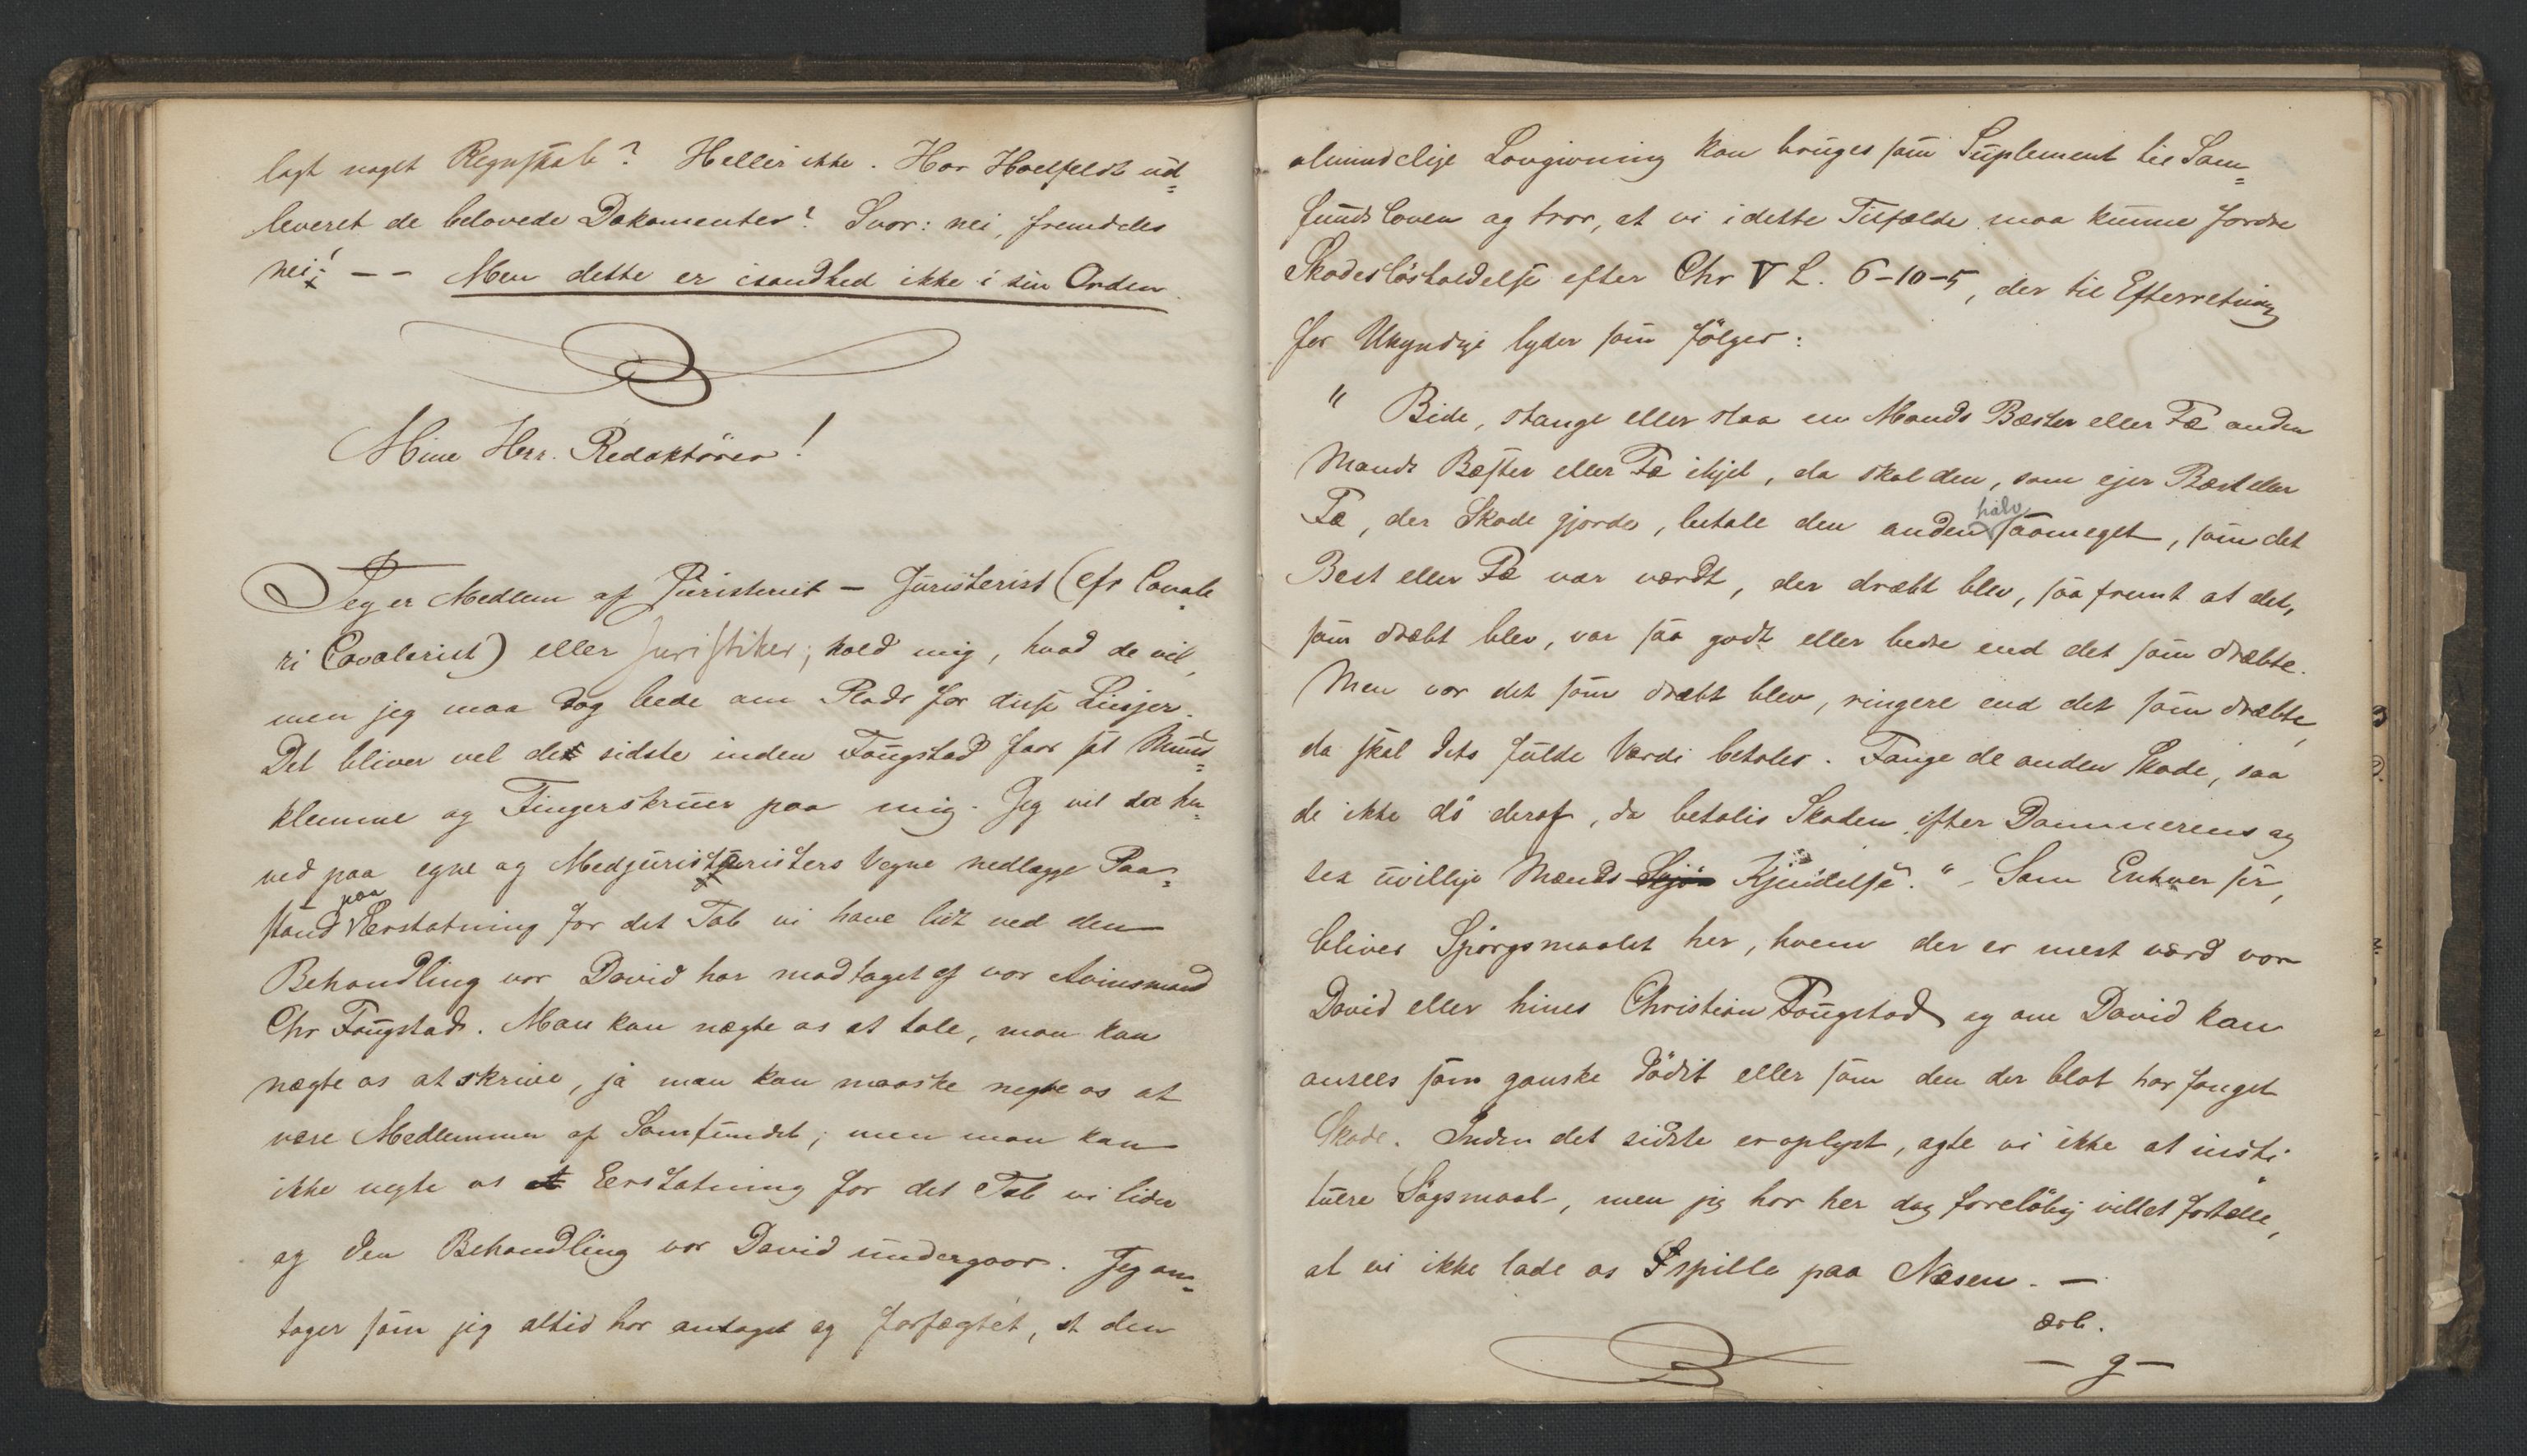 lagt noget Regnskab? Heller ikke. Har Hoelfeldt ud=
leveret de belovede Dokumenter? Svar: nei, fremdeles
nei! – – Men dette er isandhed ikke i sin Orden.
Mine Herr. Redaktörer!
Jeg er Medlem af Juristeriet – Juristerist (cfr Cavale
ri Cavalerist) eller Juristiker; kald mig, hvad de vil,
men jeg maa dog bede om Plads for disse Linjer.
Det bliver vel det sidste inden Fougstad faar sat Mund=
klemme og Fingerskruer paa mig. Jeg vil da her=
ved paa egne og Medjuristeristers Vegne nedlægge Paa=
stand paa Erstatning for det Tab vi have lidt ved den
Behandling vor David har modtaget af vor Avinsmand
Chr Fougstad. Man kan nægte os at tale, man kan
nægte os at skrive, ja man kan maaske negte os at
være Medlemmer af Samfundet; men man kan
ikke negte os Erstatning for det Tab vi lider
og den Behandling vor David undergaar. Jeg an=
tager som jeg altid har antaget og forfægtet, at den
almindelige Lovgivning kan bruges som Suplement til Sam=
fundsloven og tror, at vi i dette Tilfælde maa kunne fordre
Skadeslösholdelse efter Chr V L. 6-10-5, der til Efterretning
for Ukyndige lyder som fölger:
" Bide, stange eller slaa en Mands Bæster eller Fæ anden
Mands Bæster eller Fæ ihjel, da skal den, som ejer Bæst eller
Fæ, der Skade gjorde, betale den anden halv saameget, som det
Best eller Fæ var værdt, der dræbt blev, saafremt at det,
som dræbt blev, var saa godt eller bedre end det som dræbte.
Men var det som dræbt blev, ringere end det som dræbte,
da skal dets fulde Værdi betales. Fange de anden Skade, saa
de ikke dö deraf, da betalis Skaden efter Dommerens og
sex uvillige Mænds Skjön Kjendelse." – Som Enhver ser,
bliver Spörgsmaalet her, hvem der er mest værd vor
David eller hines Christian Fougstad og om David kan
ansees som ganske dödet eller som den der blot har fanget
Skade. Inden det sidste er oplyst, agte vi ikke at insti
tuere Sögsmaal, men jeg har her dog forelöbig villet fortælle,
at vi ikke lade os spille paa Næsen. –
ærb.
– g –